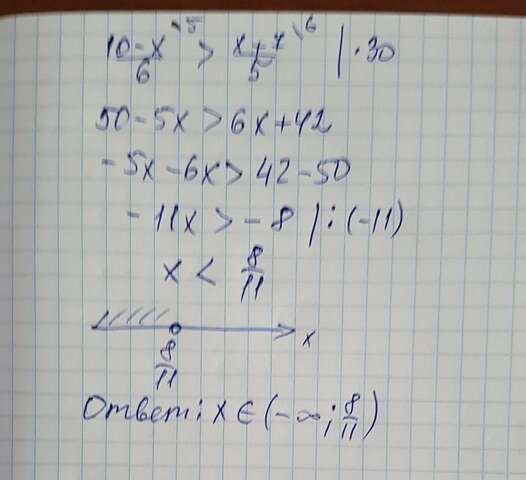 (10-x)/6 \5 > (x+7)/5 \6 | ·30
50-5x>6x+42
-5x-6x>42-50
-11x>-8 | :(-11)
x < 8/11
x
8/11
Ответ: x∈(-∞; 8/11)